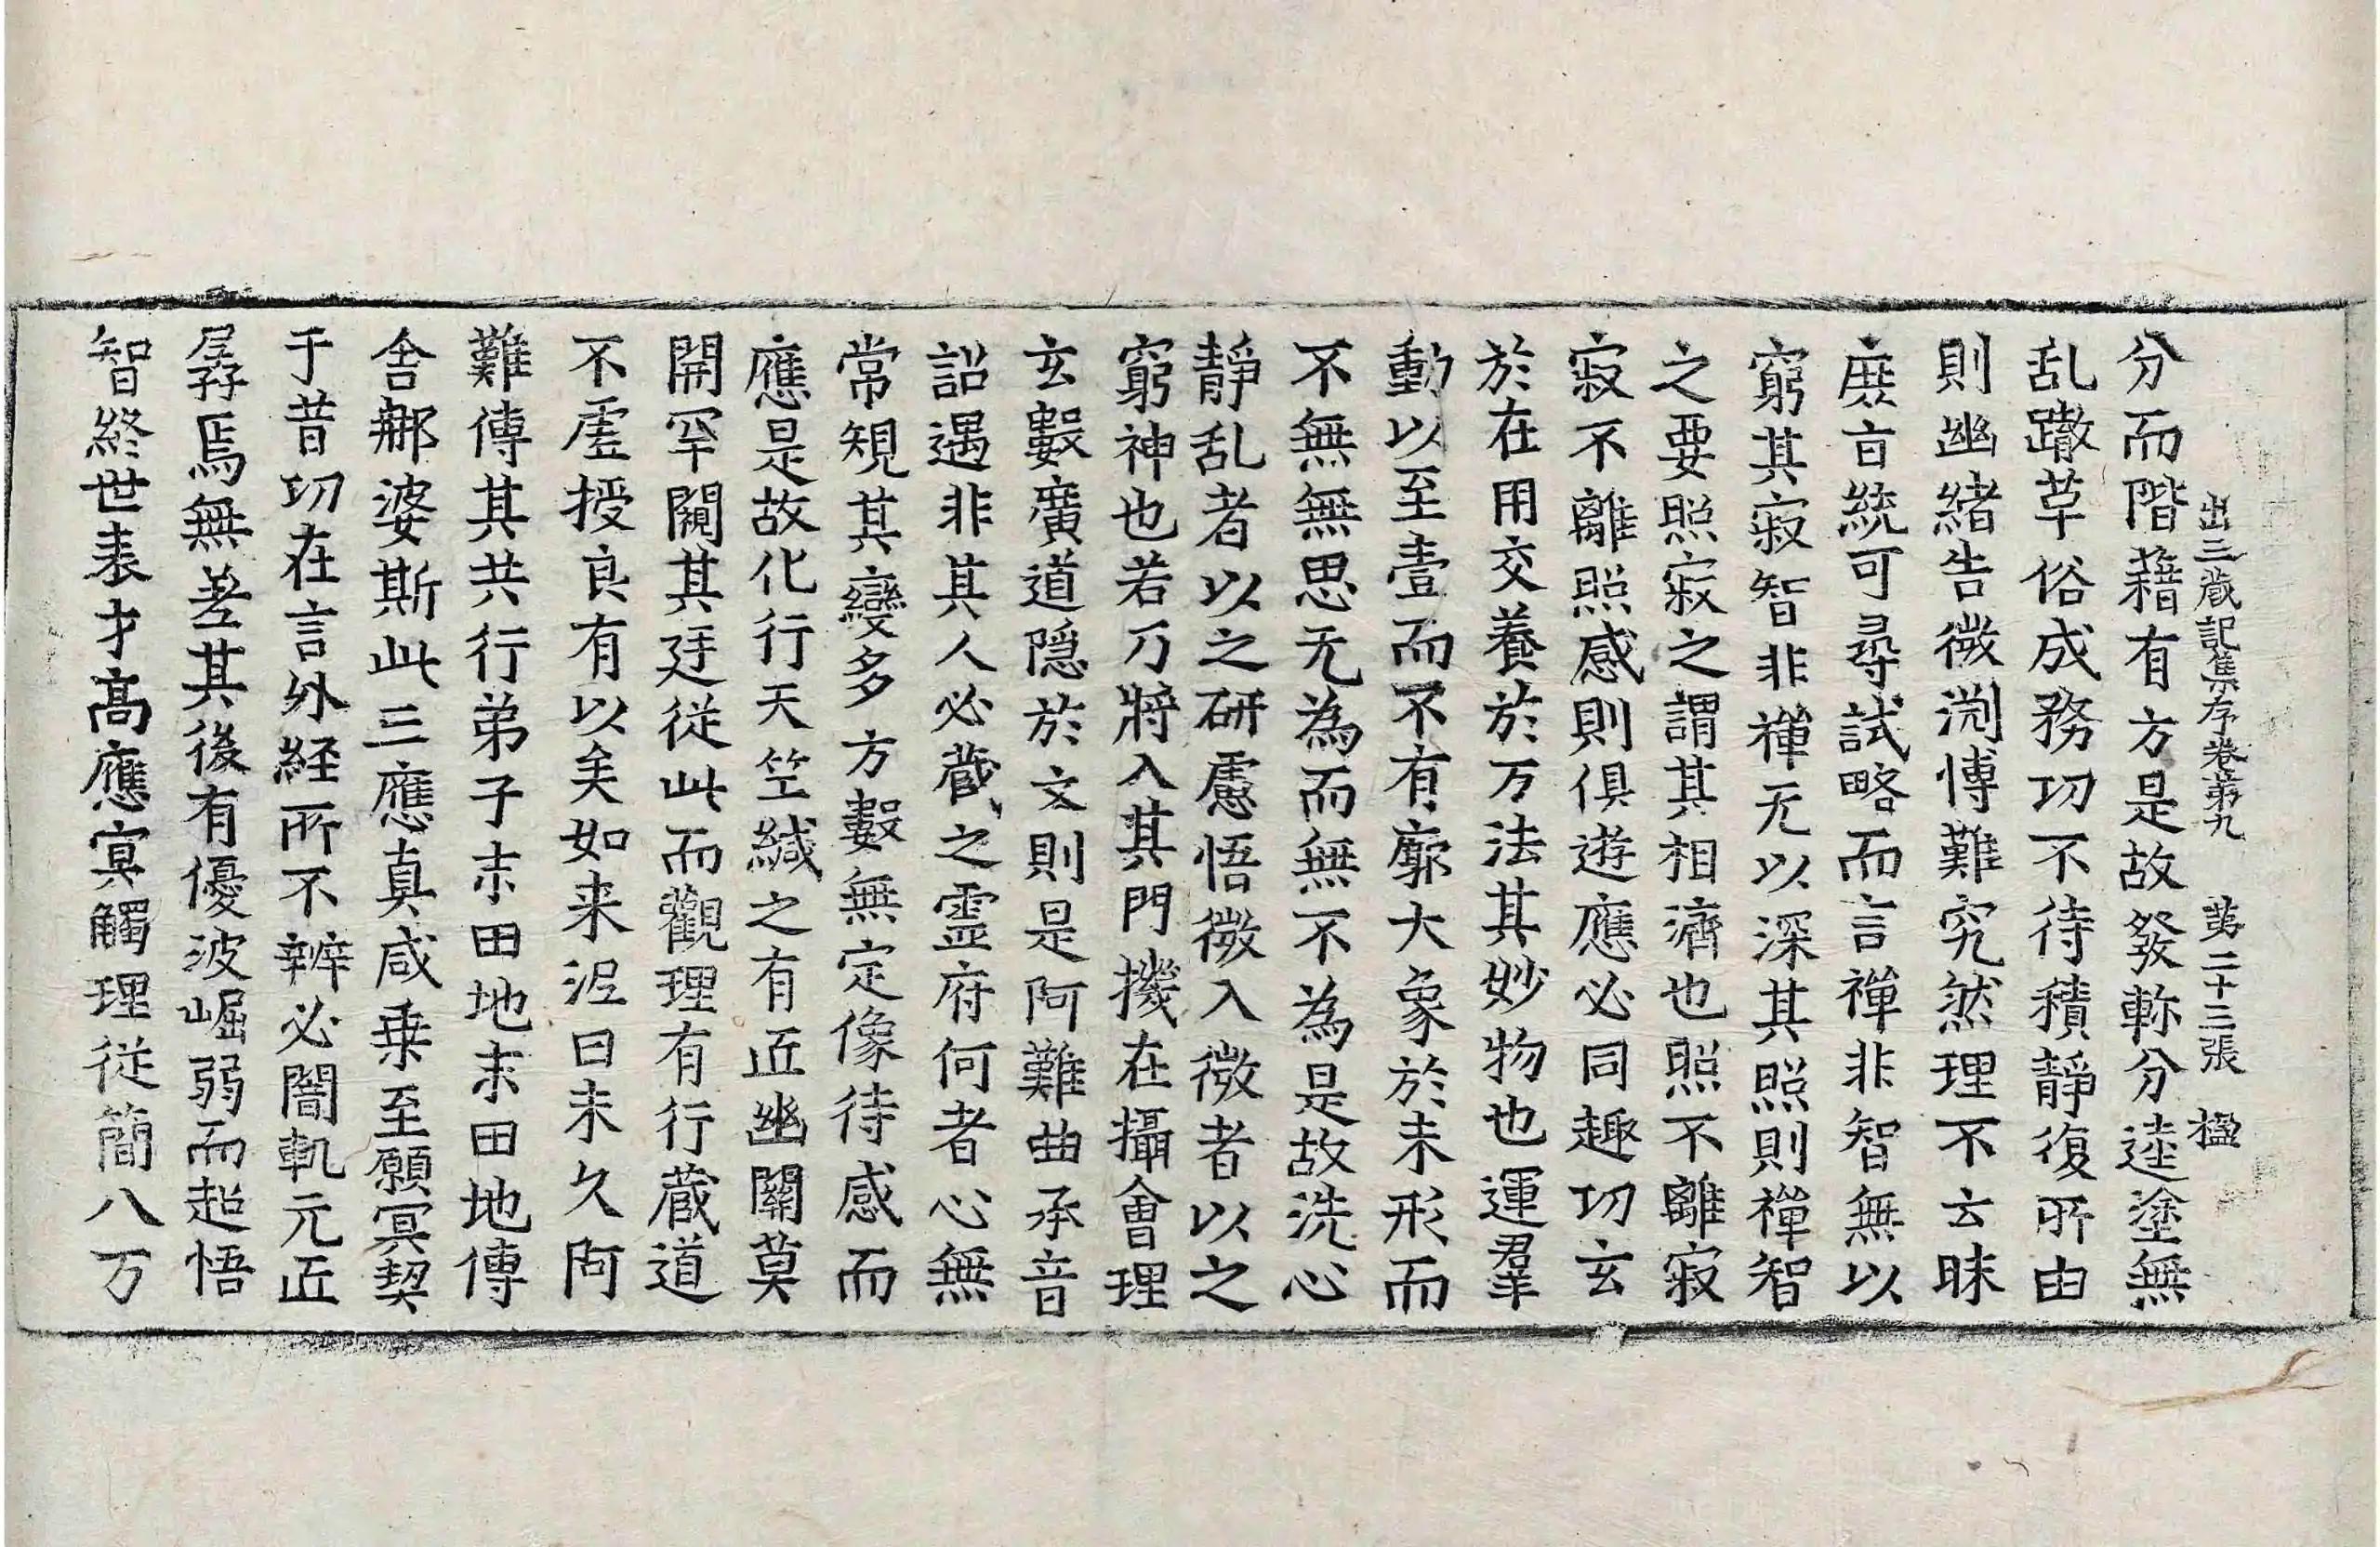 出三蔵記集序卷第九　第二十三張　楹
分而階藉有方是故發軫分逵塗無
乱蹾草俗成務功不待積静復所由
則幽緒告微渕博難究然理不云昧
庶旨統可尋試略而言禅非智無以
窮其寂智非禅无以深其照則禅智
之要照寂之謂其相濟也照不離寂
寂不離照感則俱遊應必同趣功玄
於在用交養於万法其妙物也運羣
動以至壹而不有廓大象於未形而
不無無思无為而無不為是故洗心
静乱者以之研慮悟微入微者以之
窮神也若乃将入其門機在攝會理
玄數廣道隠於文則是阿難曲承音
詔遇非其人必蔵之靈府何者心無
常規其變多方數無定像待感而
應是故化行天竺緘之有匠幽關莫
開罕闚其廷從此而觀理有行蔵道
不虚授良有以矣如来泥曰未久阿
難傳其共行弟子末田地末田地傳
舍那婆斯此三應真咸乗至願冥契
于昔功在言外経所不辨必闇軏元匠
孱焉無差其後有優波崛弱而超悟
智終世表才高應寞觸理從簡八万